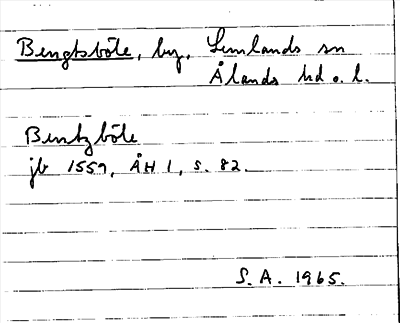 Bengtsböle, by, Lemlands sn
Ålands hd o. l.
Bentzböle
jb 1559, ÅH 1, s. 82.
S. A. 1965.